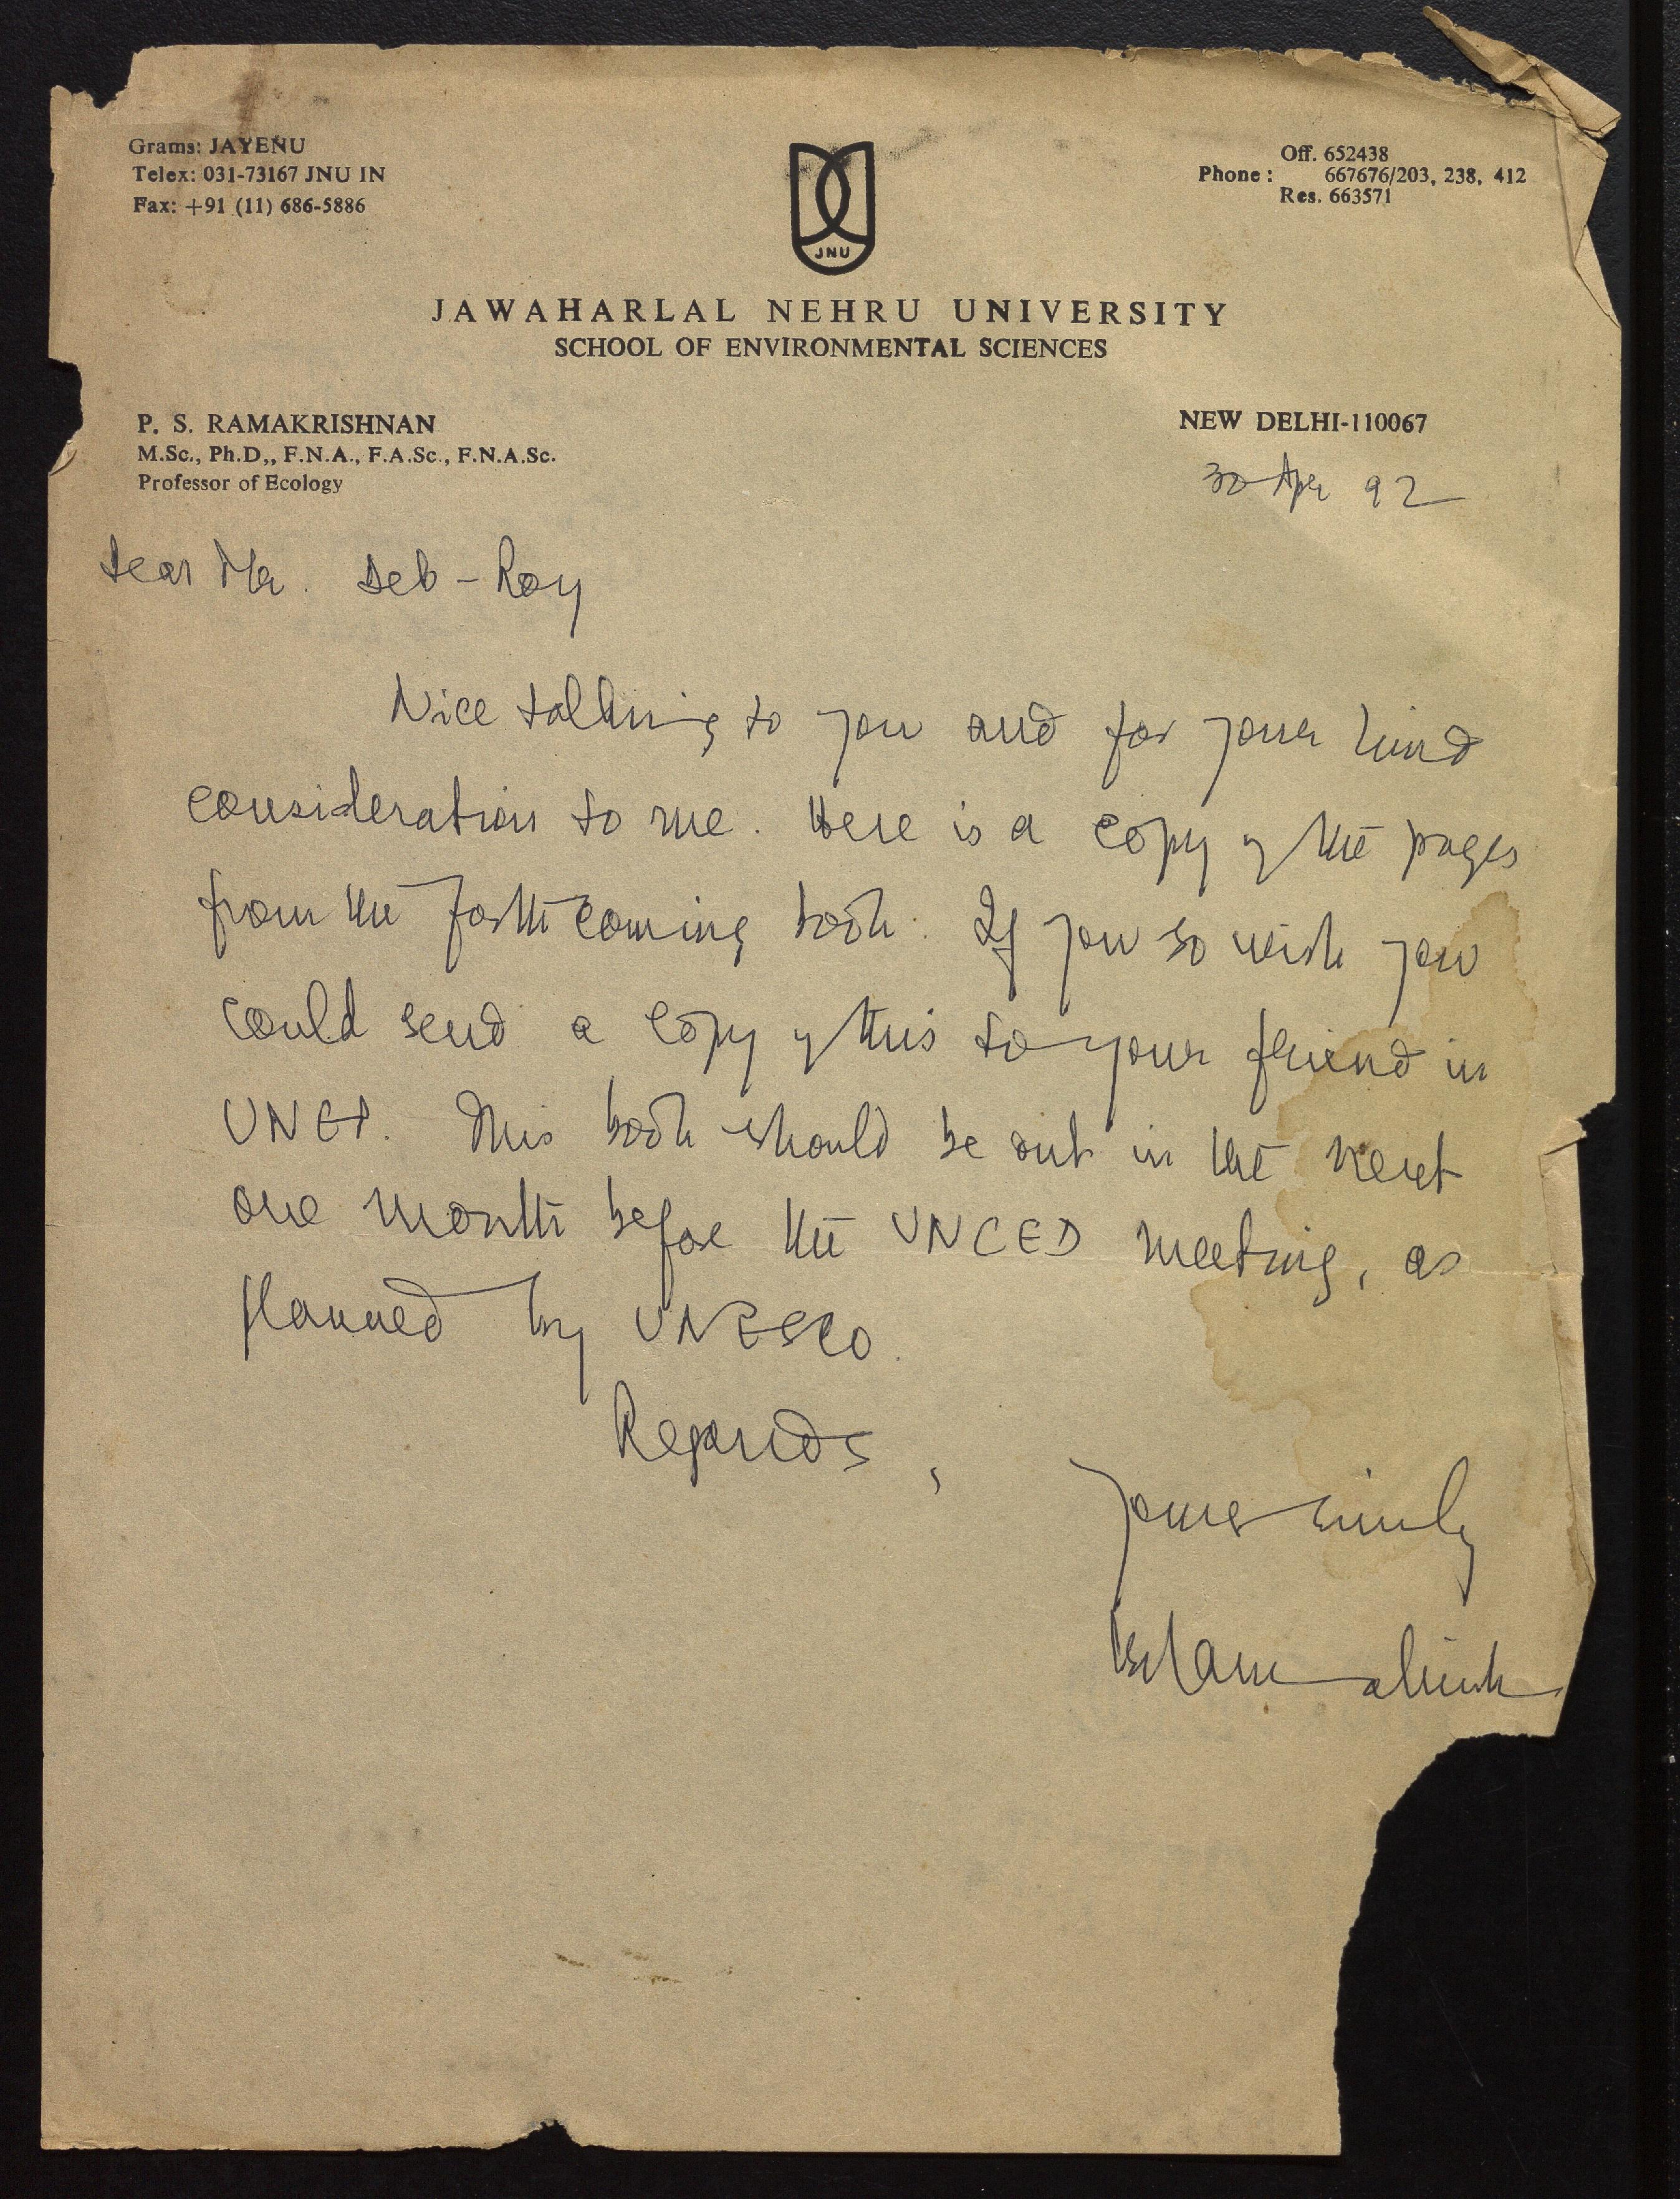 Grams: JAYENU
Telex: 031-73167 JNU IN
Fax: +91 (11) 686-5886
Off. 652438
Phone : 667676/203, 238, 412
Res. 663571
JNU
JAWAHARLAL NEHRU UNIVERSITY
SCHOOL OF ENVIRONMENTAL SCIENCES
P. S. RAMAKRISHNAN
M.Sc., Ph.D,, F.N.A., F.A.Sc., F.N.A.Sc.
Professor of Ecology
NEW DELHI-110067
30 Apr 92
Dear Mr. Deb-Roy
Nice talking to you and for your kind
consideration to me. Here is a copy of the pages
from the forthcoming book. If you so wish you
could send a copy of this to your friend in
UNEP. This book should be out in the next
one month before the UNCED meeting, as
planned by UNESCO.
Regards,
Yours sincerely